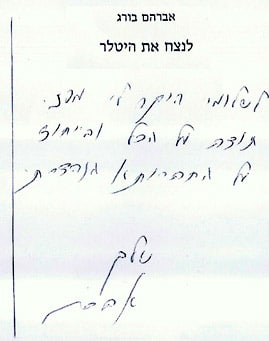 אברהם בורג
לנצח את היטלר
לשלומי היקר לי מכל.
תודה על הכל ובייחוד
על החברותא הנהדרת
שלך
אברהם